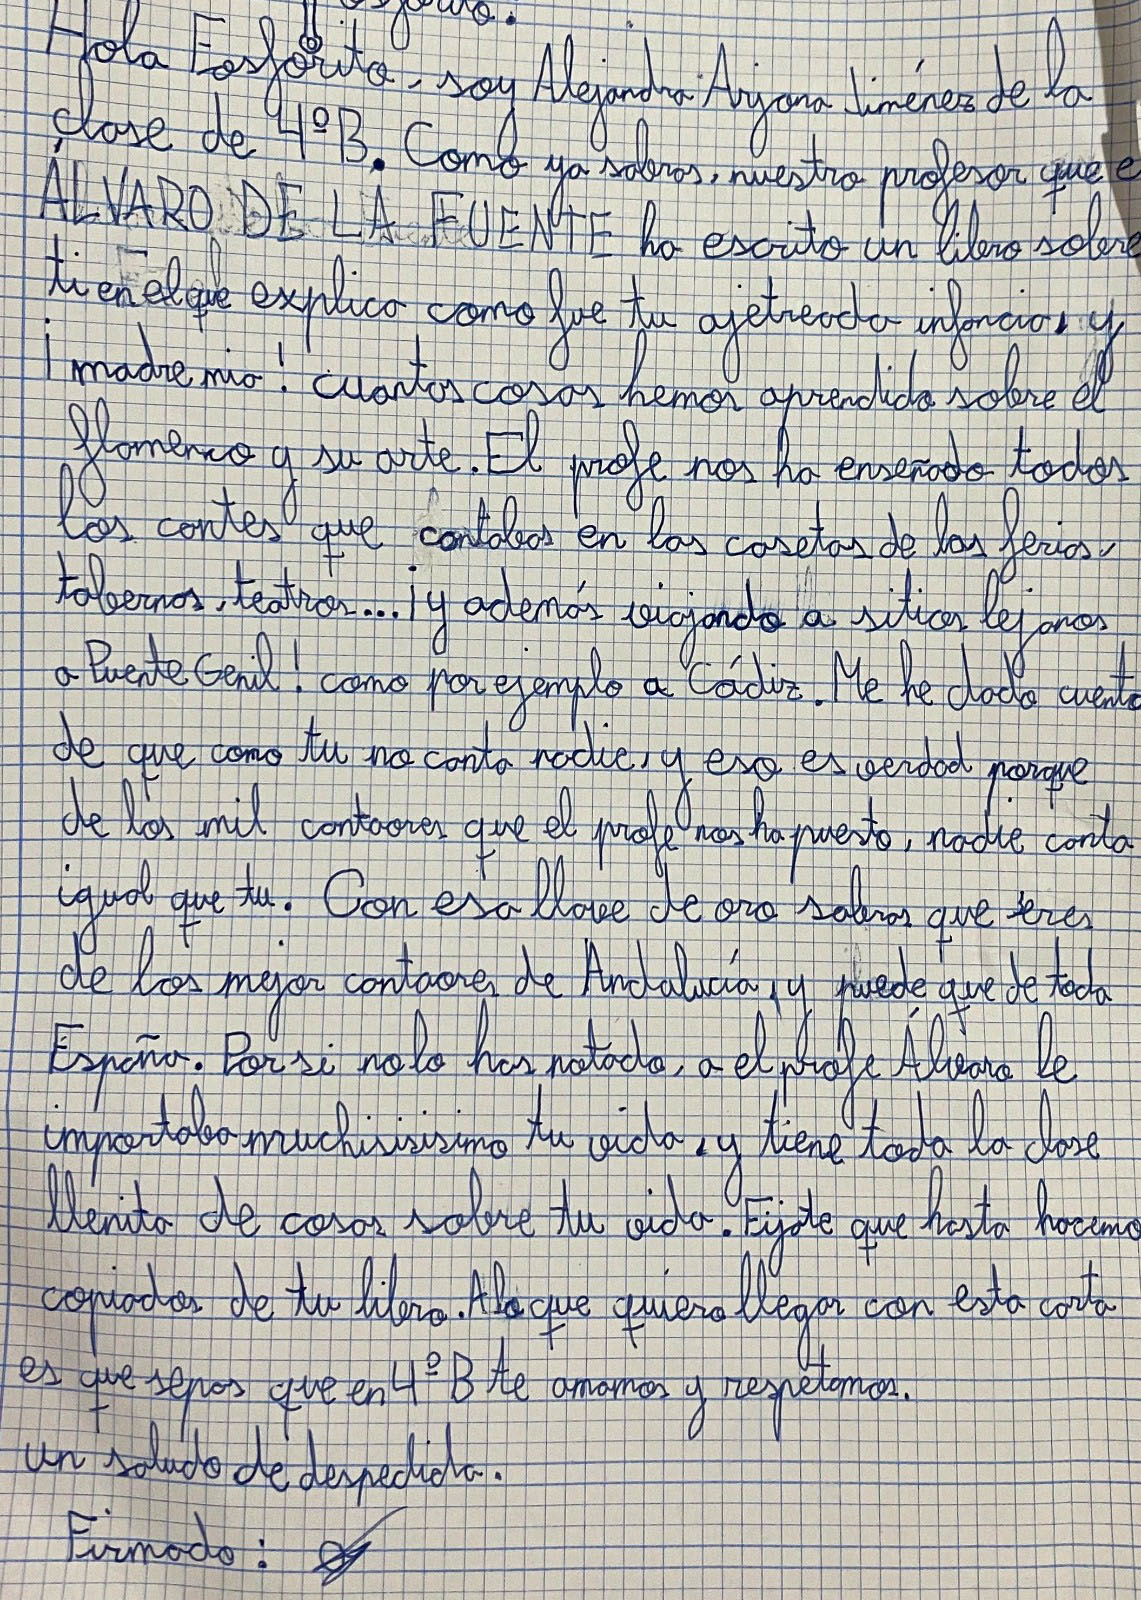 Hola Fosforito, soy Alejandra Arjona Jiménez de la
clase de 4ºB. Como ya sabras, nuestro profesor que e
ÁLVARO DE LA FUENTE ha escrito un libro sobre
ti en el que explica como fue tu ajetreada infancia, y
¡madre mia! cuantas cosas hemos aprendido sobre el
flamenco y su arte. El profe nos ha enseñado todos
los cantes que cantabas en las casetas de las ferias,
tabernas, teatros... ¡y además viajando a sitios lejanos
a Puente Genil! como por ejemplo a Cádiz. Me he dado cuenta
de que como tu no canta nadie, y eso es verdad porque
de los mil cantaores que el profe nos ha puesto, nadie canta
igual que tu. Con esa llave de oro sabras que eres
de los mejor cantaores de Andalucía, y puede que de toda
España. Por si no lo has notado, a el profe Álvaro le
importaba muchisisisimo tu vida, y tiene toda la clase
llenita de cosas sobre tu vida. Fijate que hasta hacemo
copiados de tu libro. A lo que quiero llegar con esta carta
es que sepas que en 4ºB te amamos y respetamos.
un saludo de despedida.
Firmado: